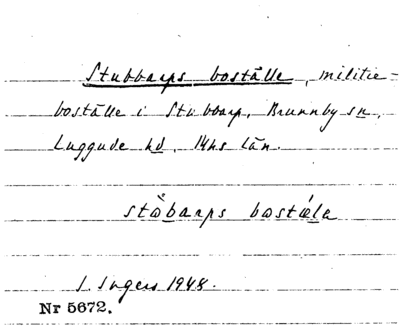 Stubbarps boställe, militie-
boställe i Stubbarp, Brunnby sn,
Luggude hd, Mhs län.
støbarps bostæle
I. Ingers 1948.
Nr 5672.